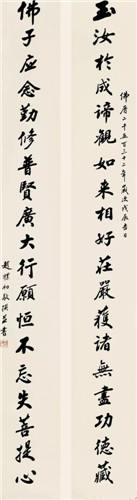 佛曆二千五百三十二年歲次戊辰吉日
玉汝於成諦觀如来相好莊嚴獲諸無盡功德藏
佛子应念勤修普賢廣大行願恒不忘失菩提心
趙樸初敬撰并書